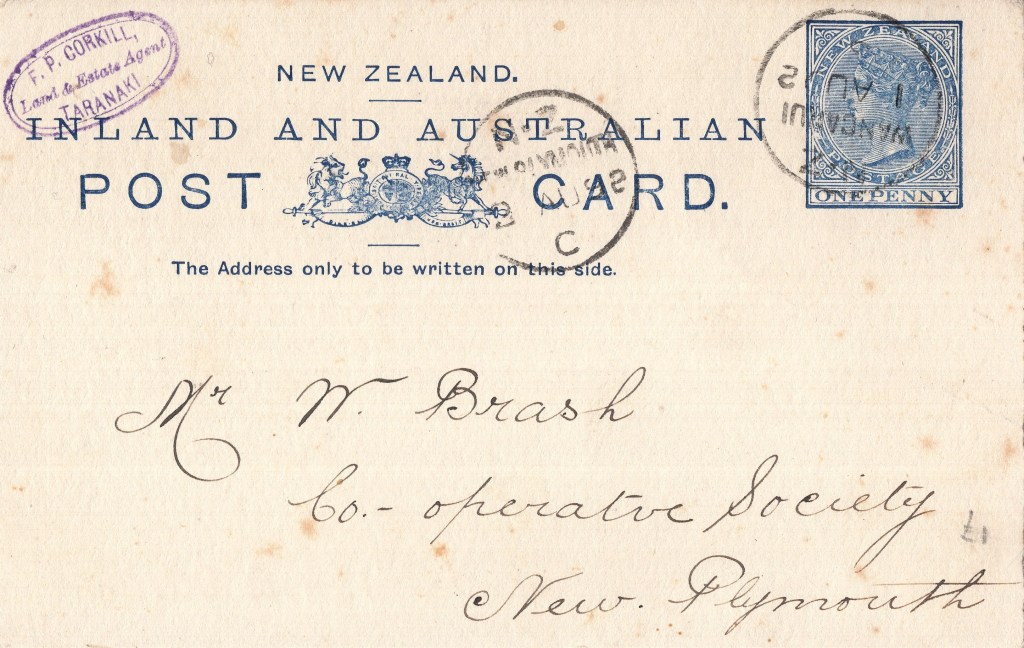 F. P. CORKILL,
Land & Estate Agent
TARANAKI
NEW ZEALAND.
INLAND AND AUSTRALIAN
POST CARD.
The Address only to be written on this side.
NEW ZEALAND
ONE PENNY
WANGANUI
1 AU
N.Z
AU 92
C
Mr W. Brash
Co.- operatve Society
New. Plymouth